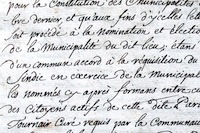 pour la Constitution des Municipalités
bre dernier et qu'aux fins d'ycelles lettres
soit procédé à la Nomination et Election
de la Municipalité du dit lieu; étans
d'un commun accord à la requisition du
Sindic en exercice de la Municipalité
les nommés cy après formans entre eux
des Citoyens actifs de cette dite
Tournoir Curé requis par la Communauté